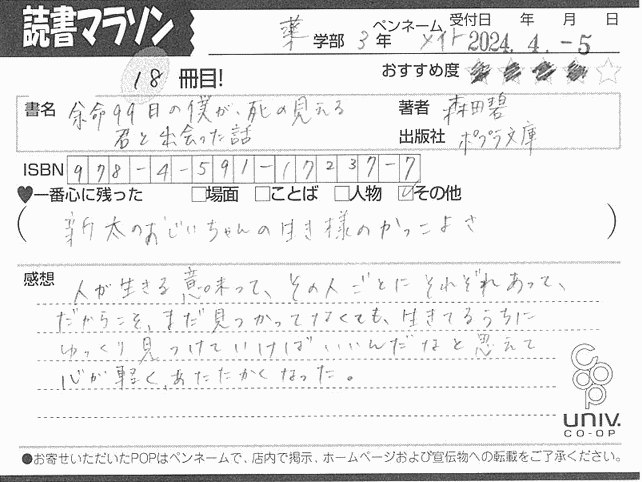 読書マラソン
薬学部 3年 ペンネーム メイト 受付日 年 月 日
2024. 4. -5
18 冊目!
おすすめ度 ★★★★☆
書名 余命99日の僕が、死の見える
君と出会った話
著者 森田碧
出版社 ポプラ文庫
ISBN 978-4-591-17237-7
♥一番心に残った □場面 □ことば □人物 ☑その他
(新太のおじいちゃんの生き様のかっこよさ)
感想 人が生きる意味って、その人ごとにそれぞれあって、
だからこそ、まだ見つかってなくても、生きてるうちに
ゆっくり見つけていけばいいんだなと思えて
心が軽く、あたたかくなった。
coop
UNIV.
CO-OP
●お寄せいただいたPOPはペンネームで、店内で掲示、ホームページおよび宣伝物への転載をご了承ください。